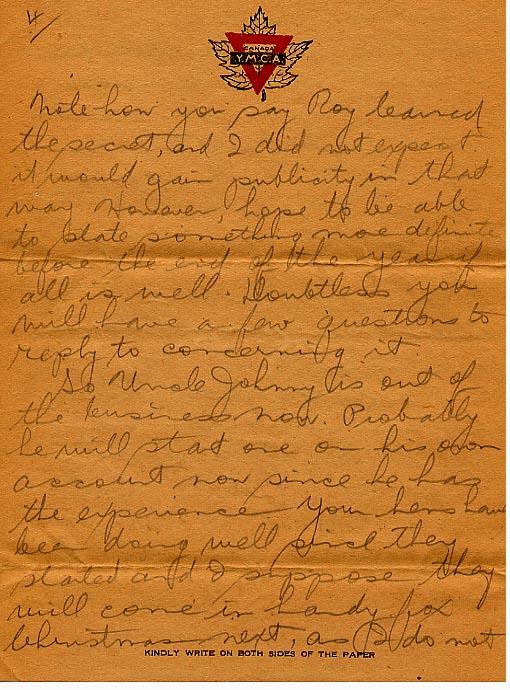 4/
CANADA
Y.M.C.A
Note how you say Roy learned
the secret, and I did not expect
it would gain publicity in that
way However, hope to be able
to state something more definite
before the end of the year if
all is well. Doubtless you
will have a few questions to
reply to concerning it.
So Uncle Johnny is out of
the business now. Probably
he will start one on his own
account now since he has
the experience Your hens have
been doing well since they
started and I suppose they
will come in handy for
Christmas next, as I do not
KINDLY WRITE ON BOTH SIDES OF THE PAPER